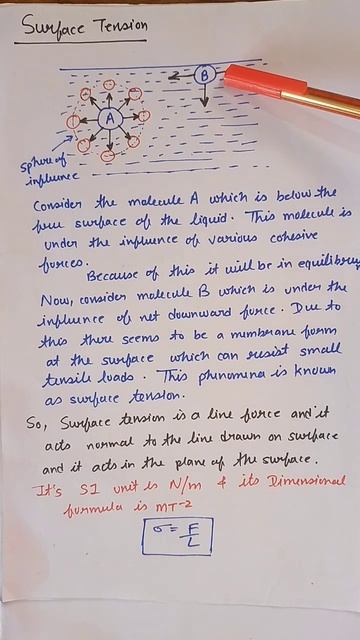 Surface Tension
B
A
sphere of
influence
Consider the molecule A which is below the
free surface of the liquid. This molecule is
under the influence of various cohesive
forces.
Because of this it will be in equilibrium
Now, consider molecule B which is under the
influence of net downward force. Due to
this there seems to be a membrane form
at the surface which can resist small
tensile loads. This phenomina is known
as surface tension.
So, Surface tension is a line force and it
acts normal to the line drawn on surface
and it acts in the plane of the surface.
It's SI unit is N/m & its Dimensional
formula is MT-2
σ = F/L